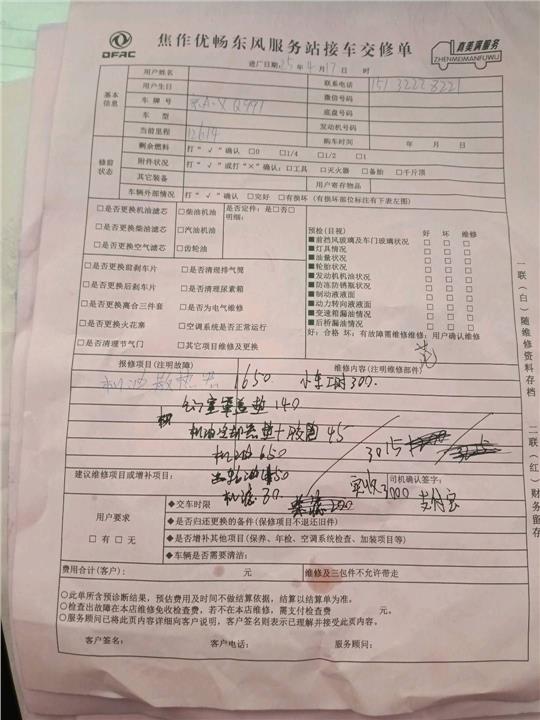 DFAC
焦作优畅东风服务站接车交修单
真美满服务
ZHENMEIMANFUWU
进厂日期：25 年 4 月 17 日 时
基本信息
用户姓名
联系电话 151 3222 8221
用户生日
微信号码
车牌号
底盘号
车型
发动机号
当前里程 12614
购车时间 年 月 日
修前状态
剩余燃料 打“√”确认 □0 □1/4 □1/2 □1
附件状况 打“√”或打“×”确认：□工具 □灭火器 □备胎 □千斤顶
其它装备
用户寄存物品
车辆外部情况 打“√”确认 □完好 □有损坏（有损坏部位标注有下表左图）
□是否更换机油滤芯 □柴油机油 是否定件：是□否□
明细：
□是否更换柴油滤芯 □汽油机油
□是否更换空气滤芯 □齿轮油
□是否更换前刹车片 □是否清理排气筒
□是否更换后刹车片 □是否清理尿素箱
□是否更换离合三件套 □是否为电气维修
□是否更换火花塞 □空调系统是否正常运行
□是否清理节气门 □其它项目维修及更换
预检（目视） 好 坏 维修
■前挡风玻璃及车门玻璃状况 □ □ □
■灯具情况 □ □ □
■油量状况 □ □ □
■轮胎状况 □ □ □
■发动机机油状况 □ □ □
■防冻防锈瓶状况 □ □ □
■制动液液面 □ □ □
■动力转向液液面 □ □ □
■变速箱漏油情况 □ □ □
■后桥漏油情况 □ □ □
好：合格 坏：有故障需维修维修：用户确认维修
报修项目（注明故障） 维修内容（注明维修部件）
机油散热器 1650 小车工时 300.
140
机油冷却器垫+胶圈 45
3015
机油 650
建议维修项目或增补项目：
司机确认签字：
实收3000 支付宝
机滤 80
用户要求
□有 □无
◆交车时限
◆是否归还更换的备件（保修项目不退还旧件）
◆是否增补其他项目（保养、年检、空调系统检查、加装项目等）
◆车辆是否需要清洁：
费用合计（客户）： 元 维修及三包件不允许带走
○此单所含预诊断结果，预估费用及时间不做结算依据，结算以结算单为准。
○检查出故障在本店维修免收检查费，若不在本店维修，需支付检查费 元。
○服务顾问已将此页内容详细向客户说明，客户签名则表示已理解并接受此页内容。
客户签名： 客户电话： 服务顾问：
一联（白）随维修资料存档
二联（红）财务留存